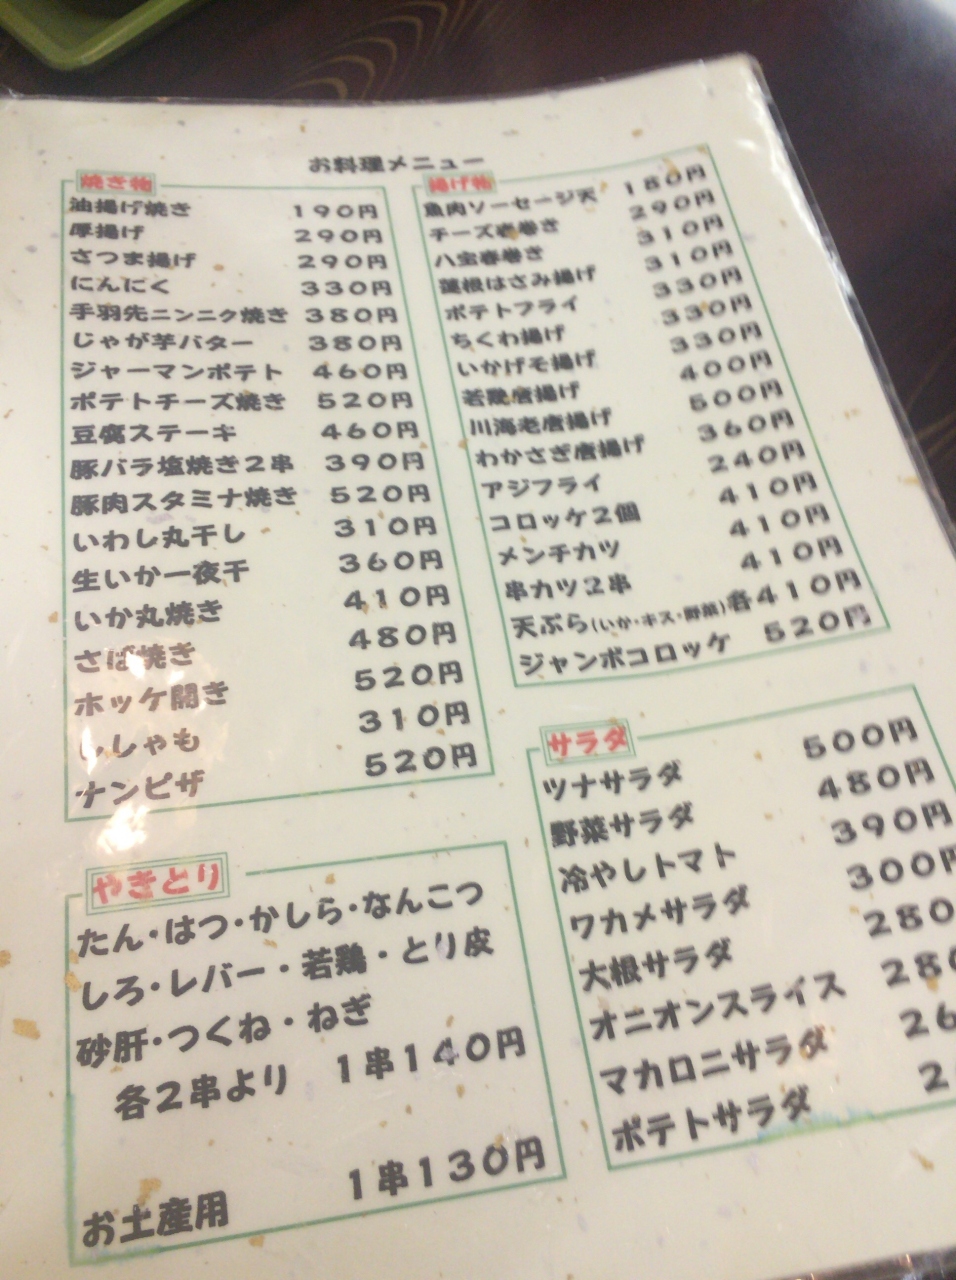 お料理メニュー
焼き物
油揚げ焼き 190円
厚揚げ 290円
さつま揚げ 290円
にんにく 330円
手羽先ニンニク焼き 380円
じゃが芋バター 380円
ジャーマンポテト 460円
ポテトチーズ焼き 520円
豆腐ステーキ 460円
豚バラ塩焼き2串 390円
豚肉スタミナ焼き 520円
いわし丸干し 310円
生いか一夜干 360円
いか丸焼き 410円
さば焼き 480円
ホッケ開き 520円
ししゃも 310円
ナンピザ 520円
揚げ物
魚肉ソーセージ天 180円
チーズ春巻き 290円
八宝春巻き 310円
蓮根はさみ揚げ 310円
ポテトフライ 330円
ちくわ揚げ 330円
いかげそ揚げ 330円
若鶏唐揚げ 400円
川海老唐揚げ 500円
わかさぎ唐揚げ 360円
アジフライ 240円
コロッケ2個 410円
メンチカツ 410円
串カツ2串 410円
天ぷら(いか・キス・野菜)各410円
ジャンボコロッケ 520円
サラダ
ツナサラダ 500円
野菜サラダ 480円
冷やしトマト 390円
ワカメサラダ 300円
大根サラダ 280
オニオンスライス 280
マカロニサラダ 26
ポテトサラダ 2
やきとり
たん・はつ・かしら・なんこつ
しろ・レバー・若鶏・とり皮
砂肝・つくね・ねぎ
各2串より 1串140円
お土産用 1串130円